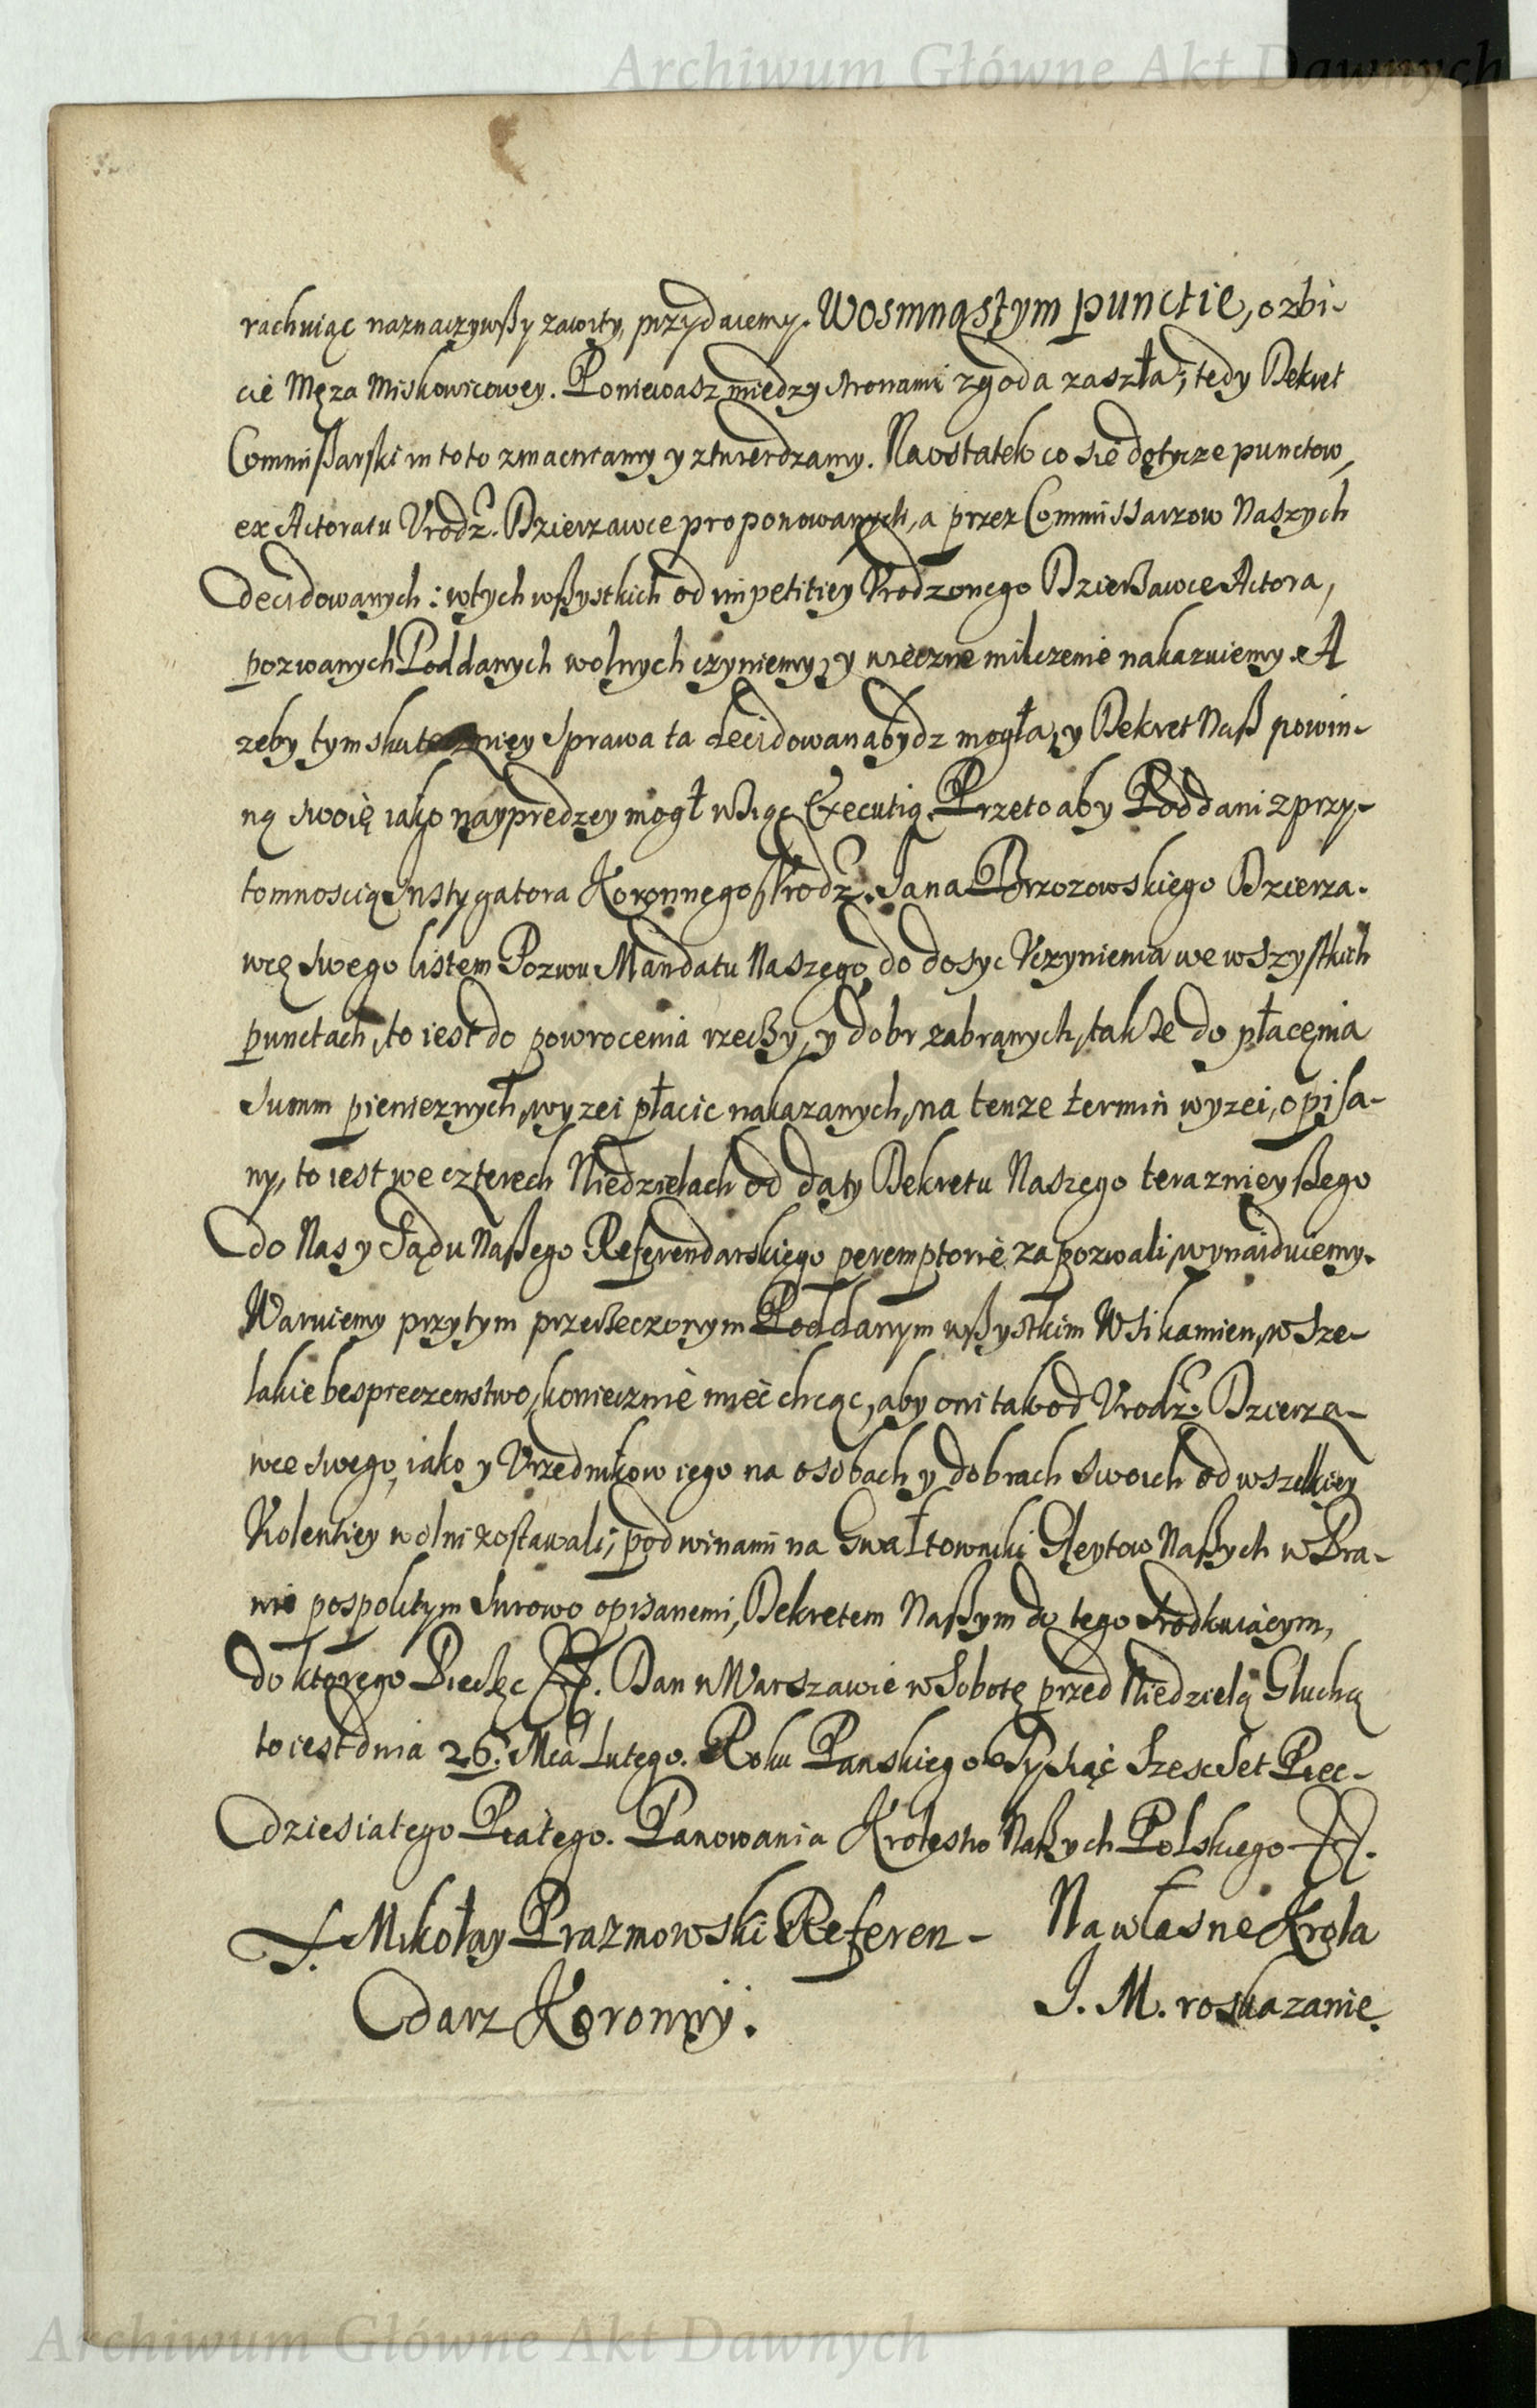 Archiwum Główne Akt Dawnych
rachuiąc naznaczywßy zawity, przydaiemy. W osmnastym punctie, o zbi-
cie Męza Miskowicowey. Poniewasz miedzy stronami zgoda zaszła; tedy Dekret
Commißarski in toto zmacniamy y ztwierdzamy. Naostatek co sie dotycze punctow,
ex Actoratu Vrodz. Dzierzawce proponowanych, a przez Commissarzow Naszych
decidowanych: w tych wßystkich od impetitiey Vrodzonego Dzierżawce Actora,
pozwanych Poddanych wolnych czyniemy, y wieczne milczenie nakazuiemy. A
zeby tym skuteczniey Sprawa ta decidowana bydz mogła, y Dekret Naß powin-
ną swoię iako naypredzey mogł wsiąc Executią. Przeto aby Poddani z przy-
tomnoscią Instygatora Koronnego, Vrodz. Jana Brzozowskiego Dzierza-
wcę swego listem Pozwu Mandatu Naszego, do dosyc Vczynienia we wszystkich
punctach, to iest do powrocenia rzeczy, y dobr zabranych, takze do płacenia
Summ pienieznych, wyzei płacic nakazanych, na tenze termin wyzei, opisa-
ny, to iest we czterech Niedzielach od daty Dekretu Naszego teraznieyßego
do Nas y Sądu Naßego Referendarskiego peremptorie zapozwali, wynaiduiemy.
Waruiemy przytym przerzeczonym Poddanym wßystkim Wsi Kamien, wsze-
lakie bespieczenstwo, koniecznie miec chcąc, aby oni tak od Vrodz. Dzierza-
wce swego, iako y Vrzednikow iego na osobach y dobrach swoich od wszelkiey
Violentiey wolni zostawali; pod winami na Gwałtowniki Gleytow Naßych w Pra-
wie pospolitym surowo opisanemi, Dekretem Naßym do tego srodkuiącym,
do ktorego Pieczęc etc. Dan w Warszawie w Sobotę przed Niedzielą Gluchą
to iest dnia 26. Mca Lutego. Roku Panskiego Tysiąc Szescset Piec-
dziesiatego Piątego. Panowania Krolestw Naßych Polskiego etc.
Mikołay Prazmowski Referen- Na własne Krola
darz Koronny. J. M. roskazanie.
Archiwum Główne Akt Dawnych